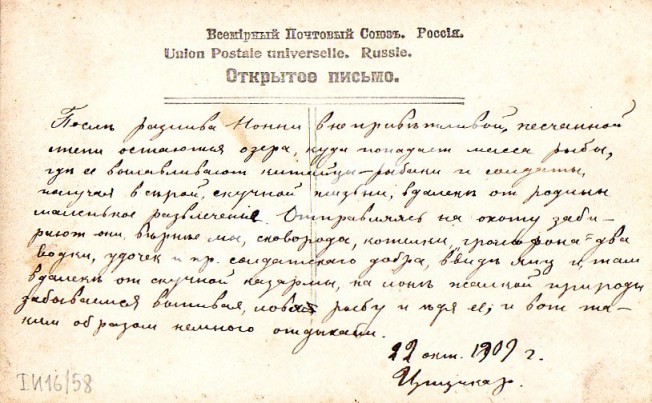 Всемірный Почтовый Союзъ. Россія.
Union Postale universelle. Russie.
Открытое письмо.
Послѣ разлива Нонни в непривѣтливой, песчанной
степи остаются озера, куда попадает масса рыбы,
где ее вылавливают китайцы-рыбаки и солдаты,
получая в сѣрой, скучной жизни, вдалекѣ от родины
маленькое развлеченіе. Отправляясь на охоту заби-
рают они, вѣрнѣе мы, сковорода, котелки, "громофона" два
водки, удочек и пр. солдатскаго добра, ввидѣ яиц и, там
вдалекѣ от скучной казармы, на лонѣ жалкой природы
забываемся выпивая, ловя рыбу и ѣдя её; и вот та-
ким образом немного отдыхаем.
22 окт. 1909 г.
Цицикар.
IИ16/58